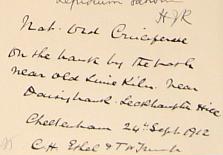 Lepidium sativum
H.J.R
Nat. Ord Cruciferae
On the bank by the path
near old Lime Kiln. near
Leckhampton Hill
Cheltenham 24th Sept. 1912
C.H. Ethel &